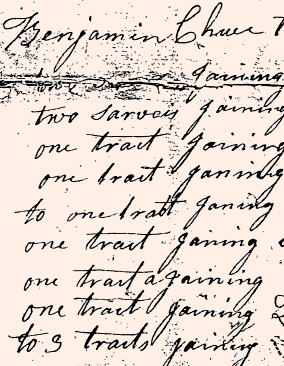 Benjamin Chuve
one gaining
two sarvais gaining
one tract gaining
one tract ganing
to one tratt ganing
one tract ganing
one tract a gaining
one tract gaining
to 3 tracts gaining